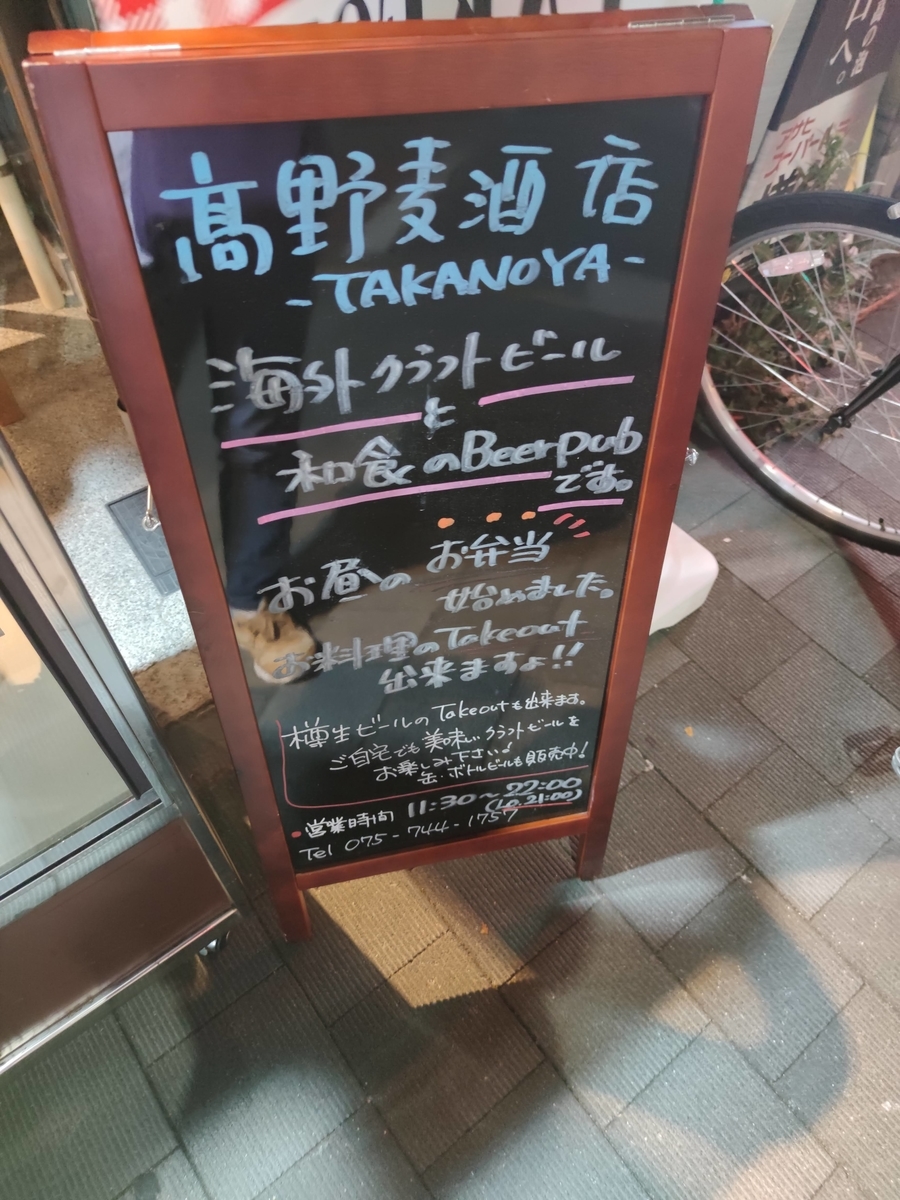 髙野麦酒店
-TAKANOYA-
海外クラフトビール
と
和食のBeerpub
です。
お昼の お弁当
始めました。
お料理のTakeout
出来ますよ!!
樽生ビールのTakeoutも出来ます。
ご自宅でも美味しいクラフトビールを
お楽しみ下さい!
缶・ボトルビールも販売中!
営業時間 11:30~22:00
(LO.21:00)
Tel 075-744-1757
口へ。
アサヒ